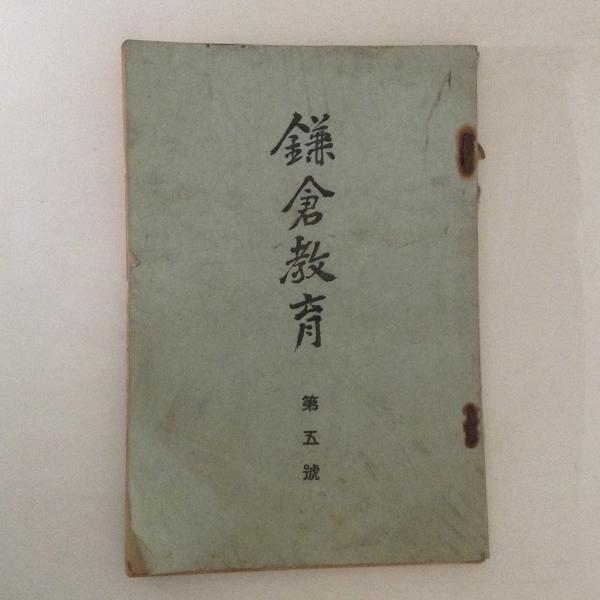 鎌倉教育
第五號